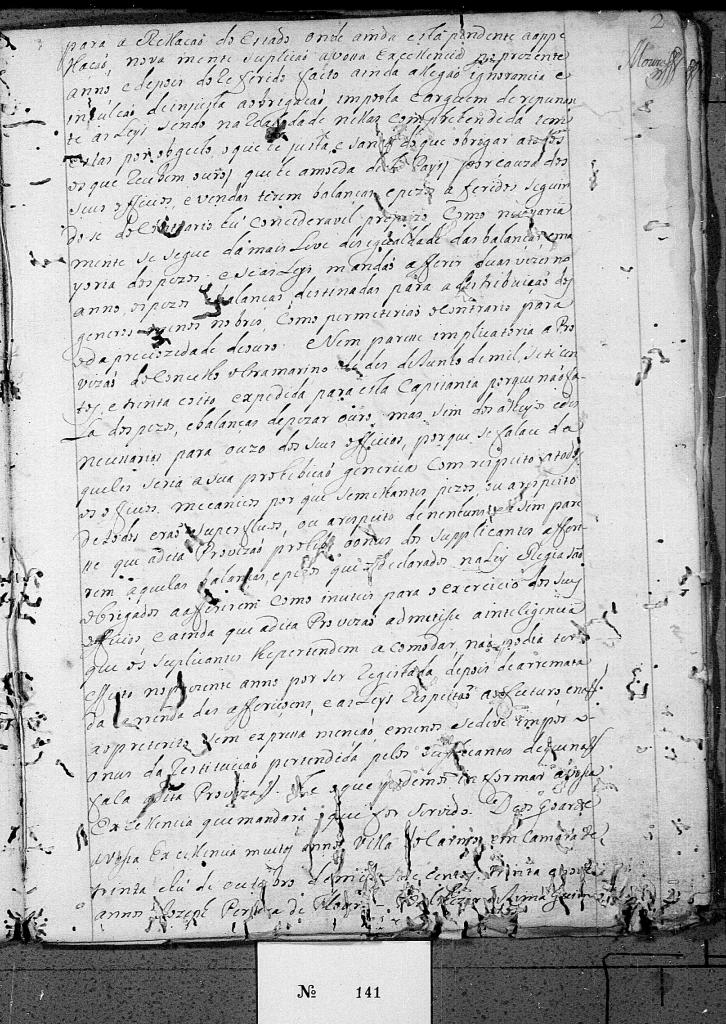 2
para a Rellação do Estado onde ainda está pendente a appe
llação, nova mente suplicão a vossa Excellencia no prezente
anno e depois do referido feito ainda allegão ignorancia e
de injusta a obrigação imposta e arguem de repunan
te as Leys sendo na Realidade nellas comprehendida
estas por objecto, o que he justo e santo do que obrigar a todos
os que Recebem ouro que he a moeda deste Pays por cauza dos
seus officios, e vendas terem balanças e pezos afferidos seguin
do-se do Contrario hú Concideravel Como necessaria
mente se segue da mais Leve desigualdade das balanças e ma
yoria dos pezos: e se as Leys mandão afferir duas vezes no
anno, os pezos e balanças, destinadas para a distribuição dos
generos menos nobres, Como permeterião o Contrario para
o da preciozidade do ouro. Nem parece implicatoria a Pro
vizão do Concelho Ultramarino de des de Junho de mil, sete cen
tos, e trinta e oito, expedida para esta Capitania porque não fa-
la dos pezos, e balanças de pezar ouro, mas sim dos
necessarios para o uzo dos seus officios, porque se falace da
quelles seria a sua prohibição generica Com respeito a todos
os officios mecanicos por que semelhantes pezos, ou a respeito
de todos erão superfluos, ou a respeito de nenhuns e sem pare
ce que a dita Provizão prohibe o onus dos supplicantes affe
rirem aquellas balanças, e pezos que declarados na Ley Regia são
obrigados a afferirem Como inuteis para o exercicio dos seus
officios e ainda que a dita Provizão admetisse a inteligencia
que os suplicantes lhe pertendem acomodar, não podia ter
effeito no prezente anno por ser Registada depois de arremata
da a renda das afferiçoens, e as Leys Respeitão ao futuro e não
ao preterito sem expressa menção, e menos se deve impor o
onus da Restituição pertendida pelos suplicantes de que não
fala a dita Provizão. He o que podemos informar a vossa
Excellencia que mandará o que for servido. Deos Guarde
a vossa Excellencia muitos annos Villa do Carmo em Camara de
trinta e hú de outubro de mil e sete centos e trinta e nove
annos Jozeph Pereira de
Nº 141